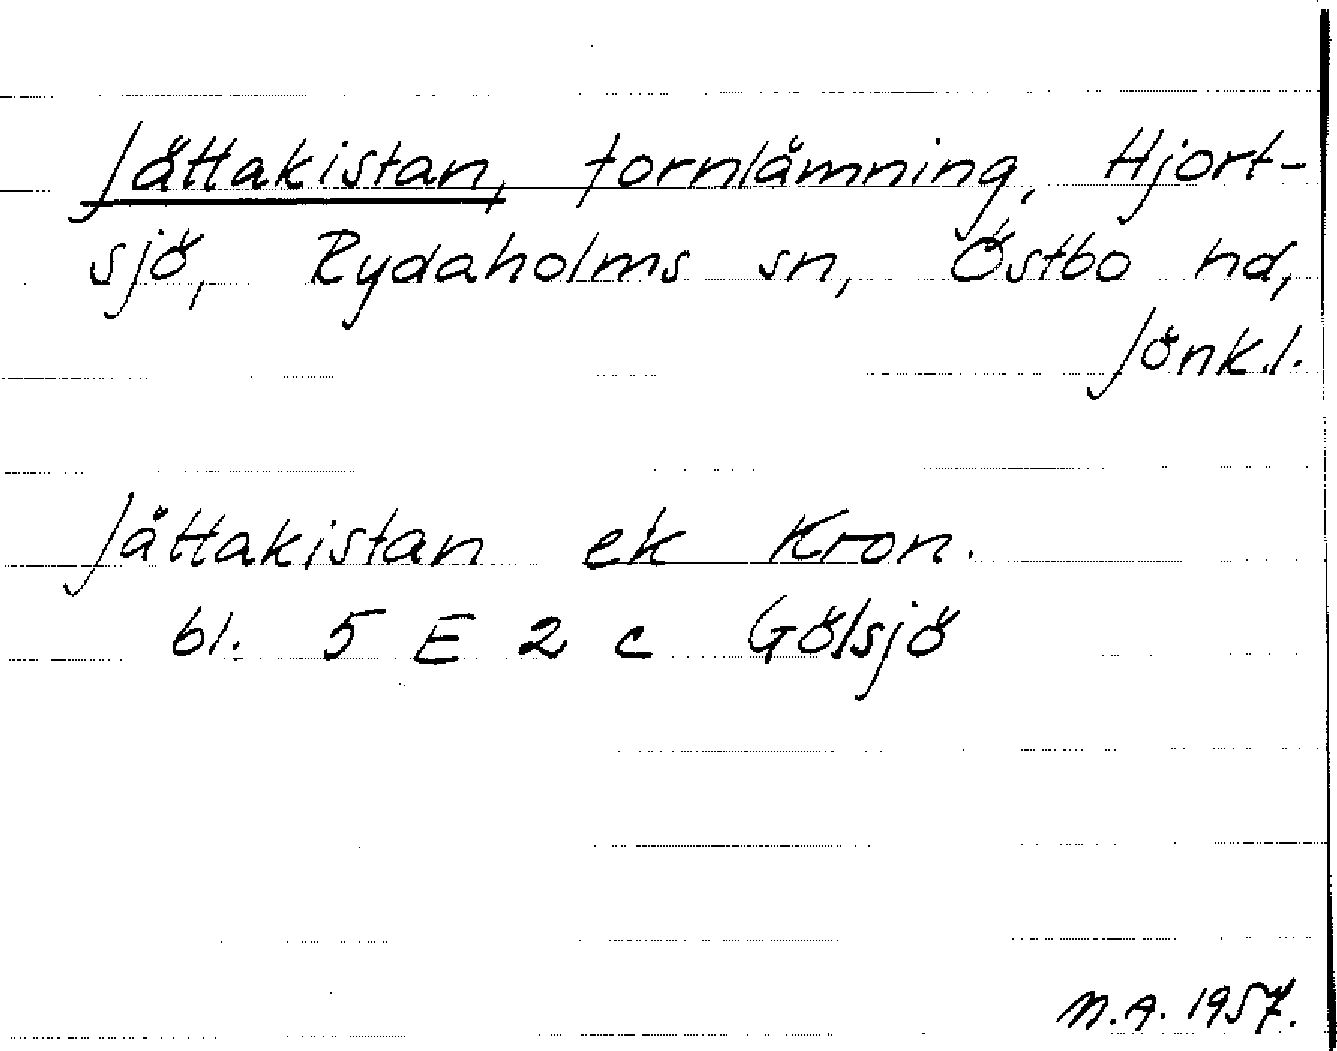 Jättakistan, fornlämning, Hjort-
sjö, Rydaholms sn, Östbo hd,
Jönk.l.
Jättakistan ek Kron.
bl. 5 E 2 c Gölsjö
M.A. 1957.